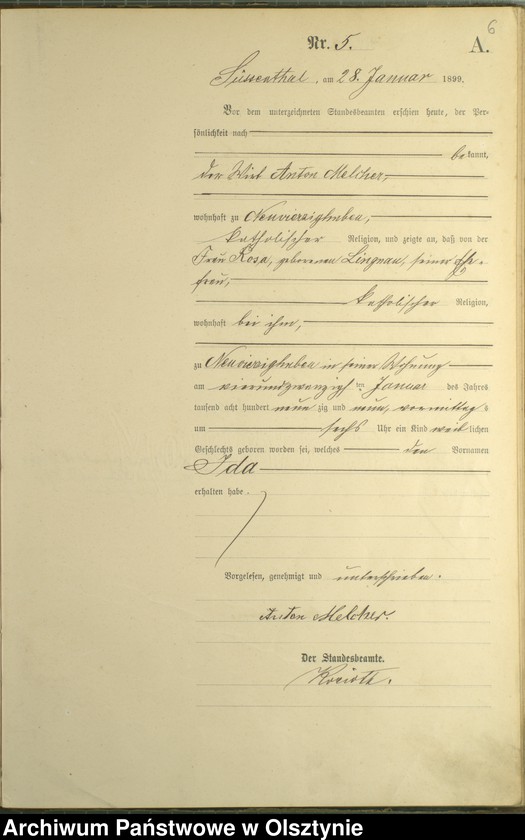 6
Nr. 5.
A.
Süssenthal, am 28. Januar 1899.
Vor dem unterzeichneten Standesbeamten erschien heute, der Per-
sönlichkeit nach
bekannt,
der Wirt Anton Melcher,
wohnhaft zu Neuvierzighuben,
katholischer Religion, und zeigte an, daß von der
Frau Rosa, geborenen Lingnau, seiner Ehe-
frau,
katholischer Religion,
wohnhaft bei ihm,
zu Neuvierzighuben in seiner Wohnung
am vierundzwanzigsten Januar des Jahres
tausend acht hundert neunzig und neun, vormittags
um sechs Uhr ein Kind weiblichen
Geschlechts geboren worden sei, welches den Vornamen
Ida
erhalten habe.
Vorgelesen, genehmigt und unterschrieben.
Anton Melcher.
Der Standesbeamte.
Archiwum Państwowe w Olsztynie